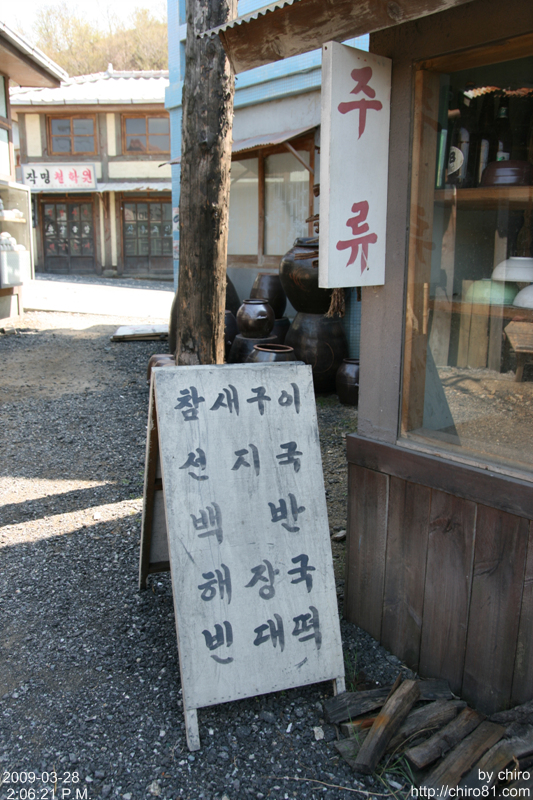 주류
작명철학원
참새구이
선지국
백반
해장국
빈대떡
2009-03-28
2:06:21 P.M.
by chiro
http://chiro81.com/